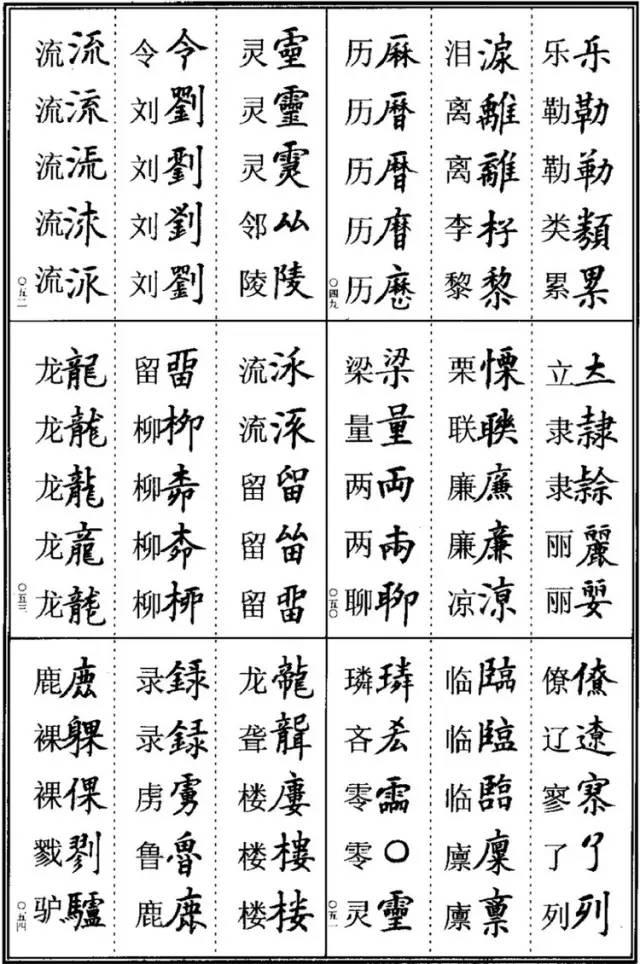 乐乐
勒勒
勒勒
类類
累累
泪淚
离離
离離
李杍
黎黎
历厤
历暦
历暦
历
历歷
〇四九
立
隶隸
隶
丽麗
丽
栗慄
联
廉廉
廉廉
凉涼
梁梁
量量
两両
两兩
聊聊
〇五〇
僚僚
辽遼
寥寮
了了
列列
临臨
临臨
临臨
廪廩
廪稟
璘璘
吝
零
零〇
灵靈
〇五一
灵靈
灵靈
灵
邻厸
陵陵
令令
刘劉
刘劉
刘劉
刘劉
流流
流流
流
流
流
〇五二
流
流
留留
留
留畱
留畱
柳柳
柳
柳
柳
龙龍
龙龍
龙龍
龙龍
龙龍
〇五三
龙龍
聋聾
楼廔
楼樓
楼楼
录録
录録
虏虜
鲁魯
鹿鹿
鹿鹿
裸躶
裸倮
戮剹
驴驢
〇五四